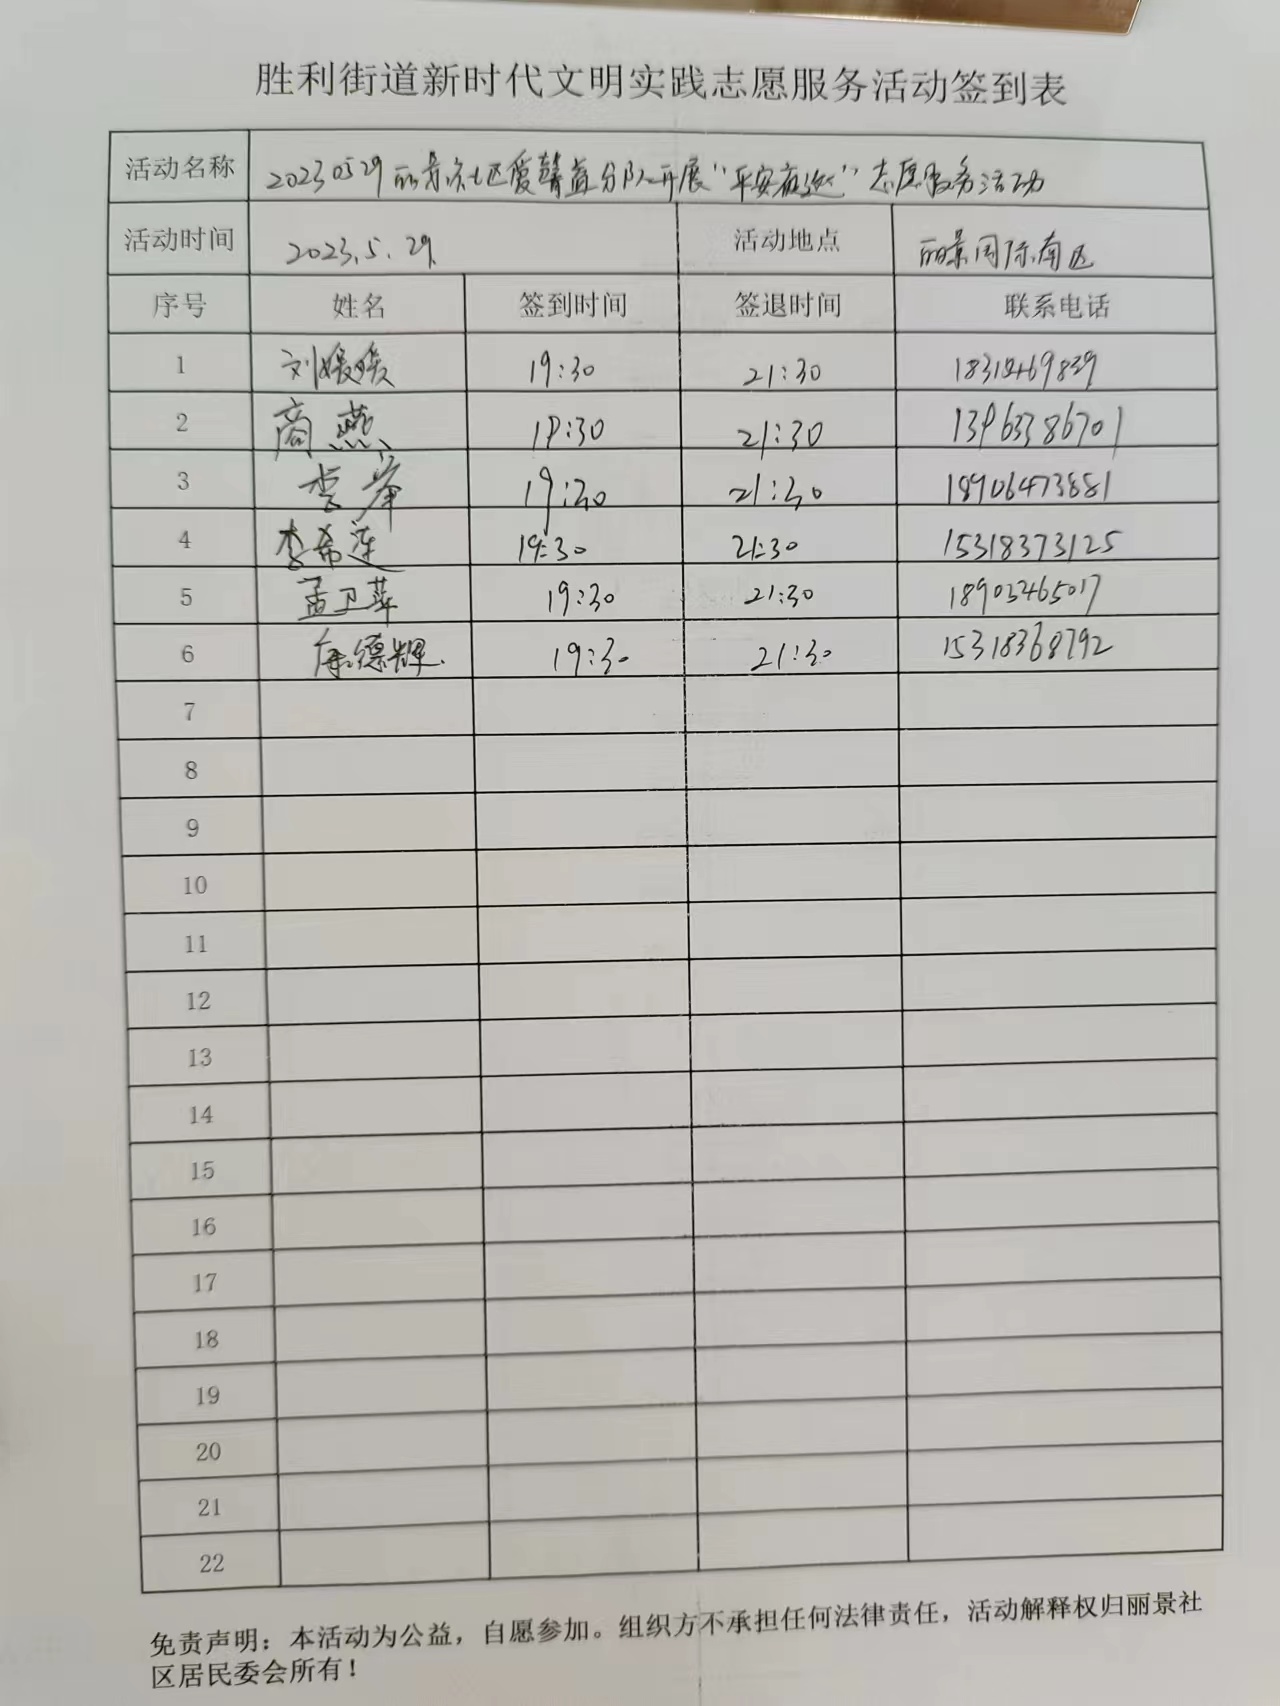 胜利街道新时代文明实践志愿服务活动签到表
活动名称 20230529丽景社区爱馨益分队开展“平安夜巡”志愿服务活动
活动时间 2023.5.29. 活动地点 丽景国际南区
序号 姓名 签到时间 签退时间 联系电话
1 刘媛媛 19:30 21:30
2 商燕 19:30 21:30 13963386701
3 李 19:30 21:30 18906473881
4 李希莲 19:30 21:30 15318373125
5 孟卫萍 19:30 21:30 18903465017
6 德辉 19:30 21:30 15318368792
7
8
9
10
11
12
13
14
15
16
17
18
19
20
21
22
免责声明：本活动为公益，自愿参加。组织方不承担任何法律责任，活动解释权归丽景社
区居民委会所有！